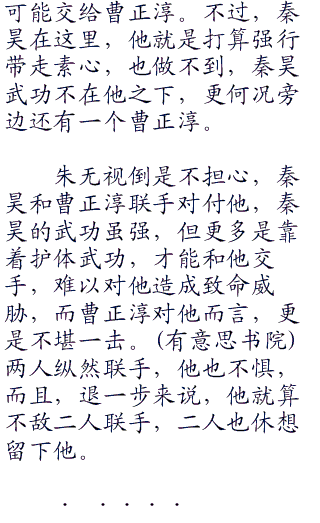 可能交给曹正淳。不过，秦
昊在这里，他就是打算强行
带走素心，也做不到，秦昊
武功不在他之下，更何况旁
边还有一个曹正淳。
朱无视倒是不担心，秦
昊和曹正淳联手对付他，秦
昊的武功虽强，但更多是靠
着护体武功，才能和他交
手，难以对他造成致命威
胁，而曹正淳对他而言，更
是不堪一击。(有意思书院)
两人纵然联手，他也不惧，
而且，退一步来说，他就算
不敌二人联手，二人也休想
留下他。
. . . . .